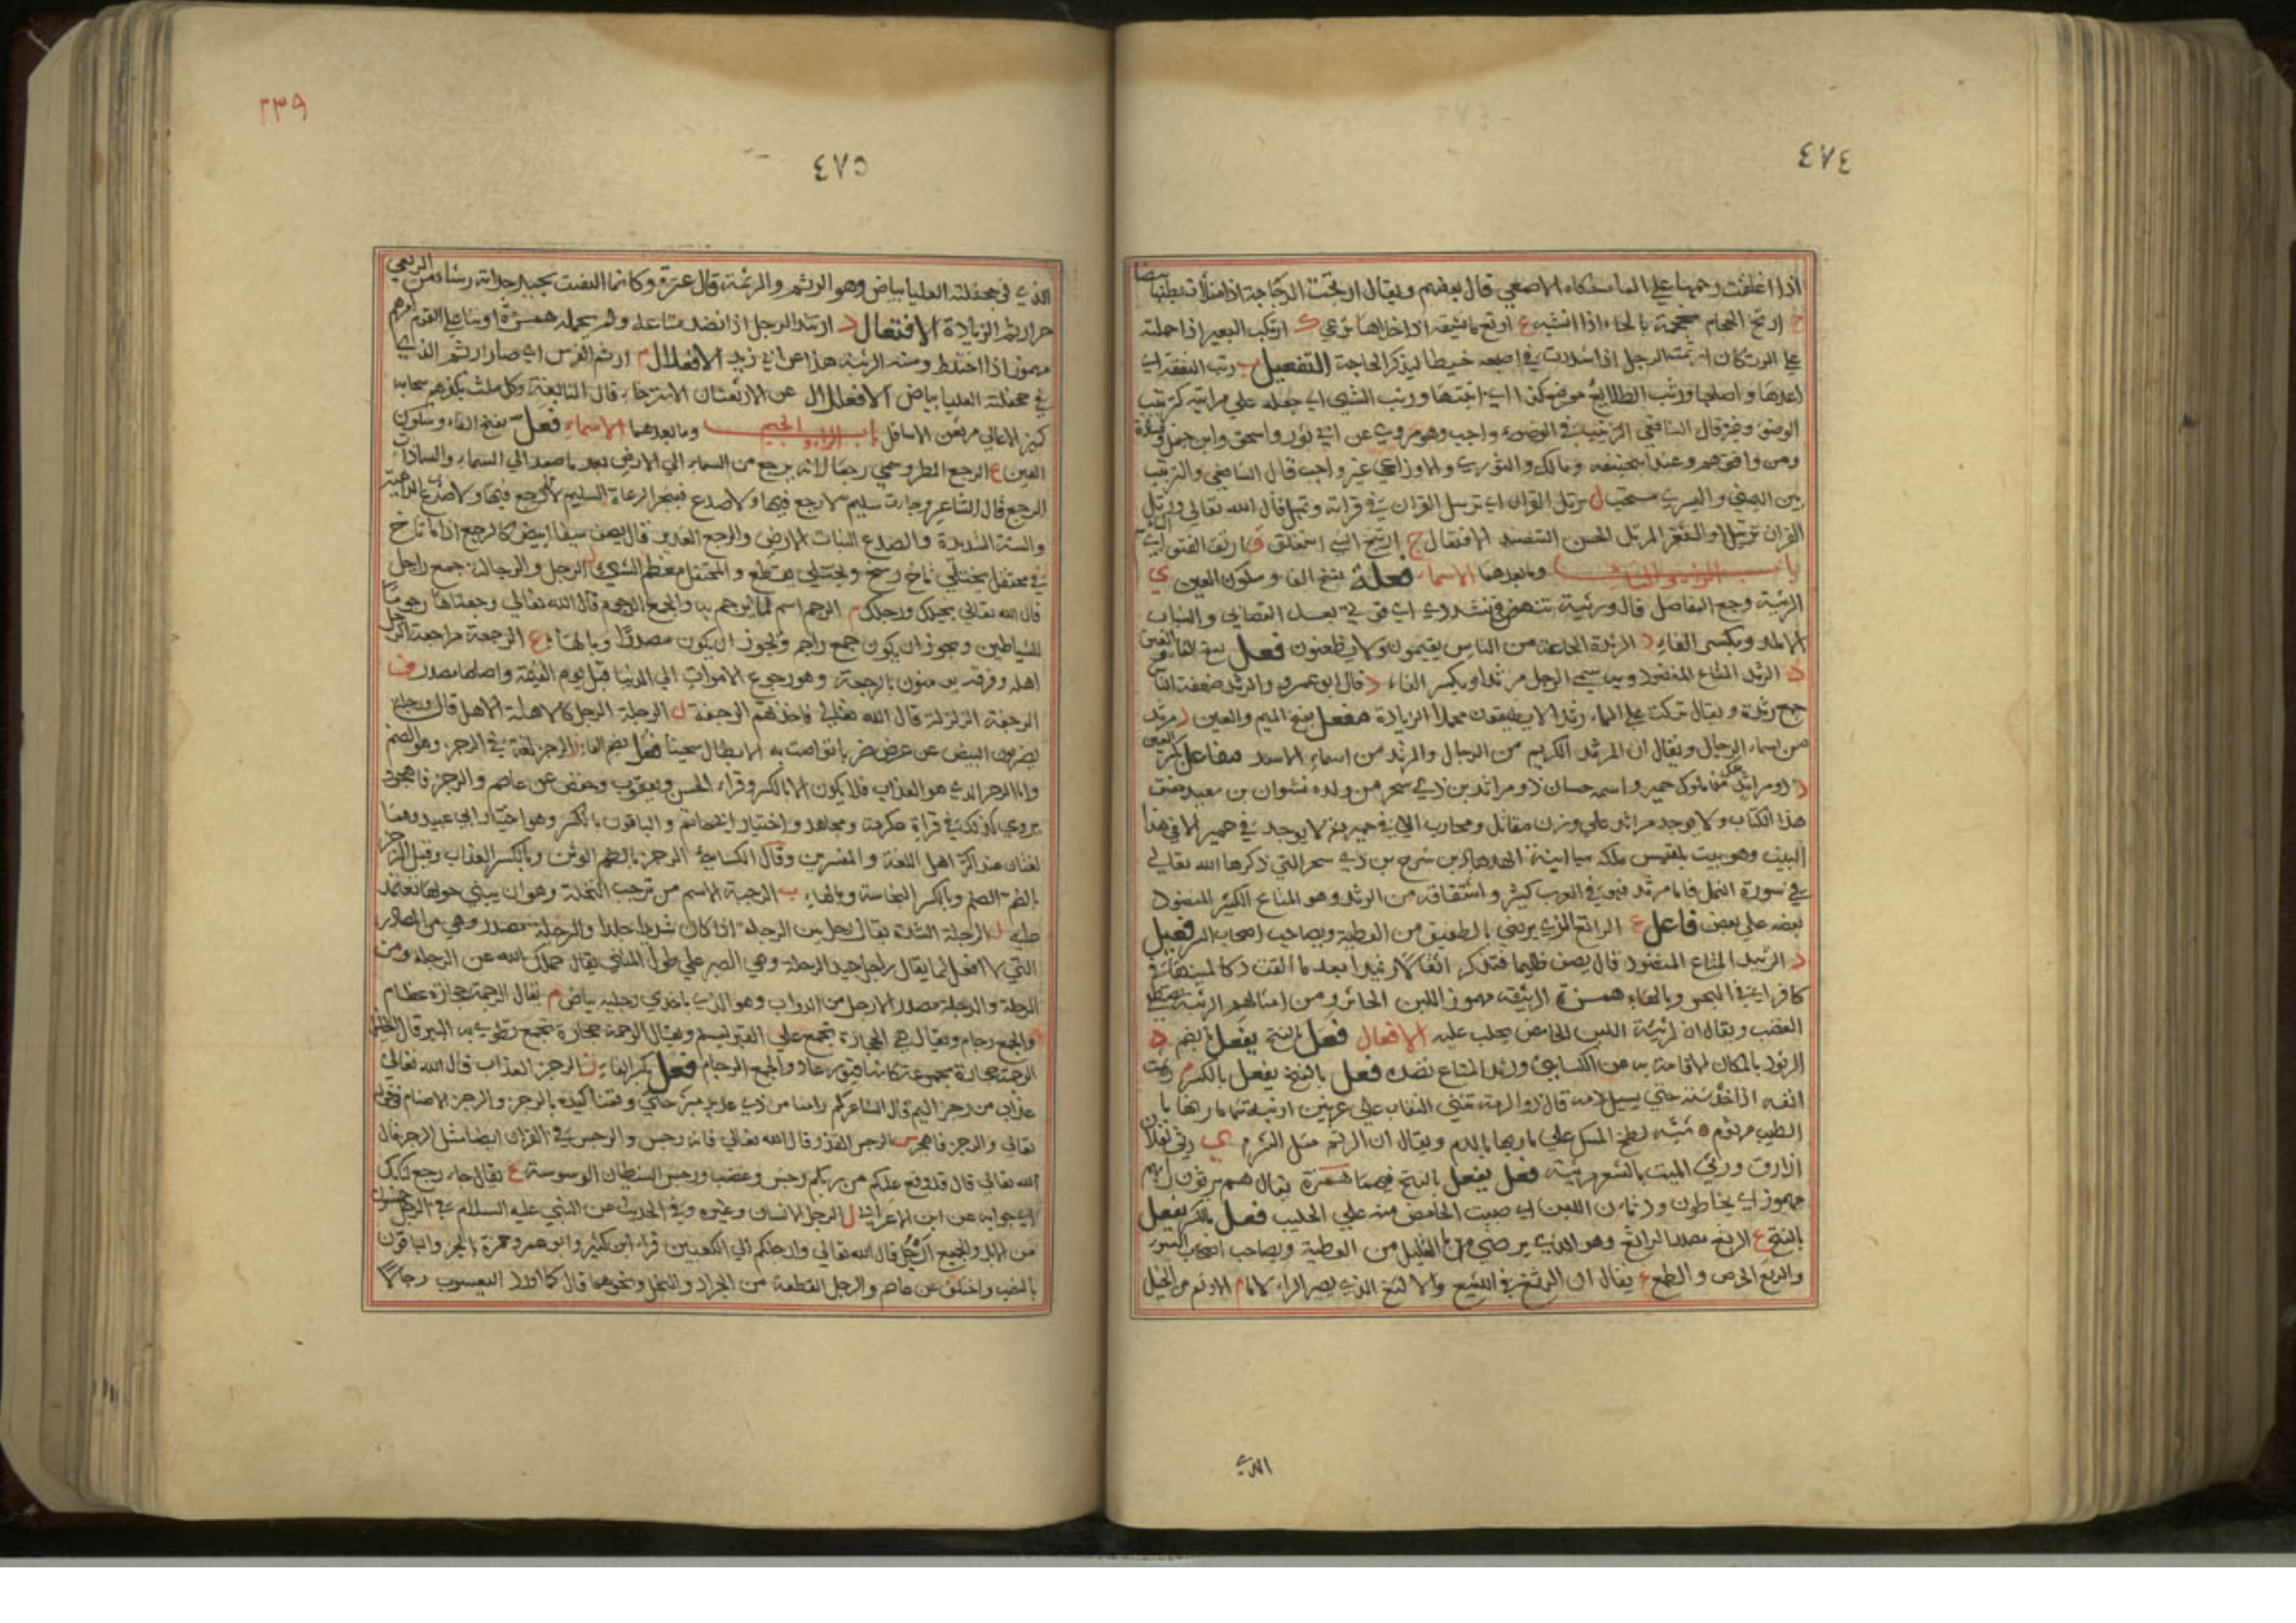 ٤٧٤
اذا اغلقت رحمها على الماء حكاه الاصمعي قال بعضهم ويقال ارتجت الدجاجة اذا امتلأت بطنها بيضا
ح ارتح الحجام محجمة بالحاء اذا انشبه ع ارتع ماشيته اذا خلاها ترعى ك ارتكب البعير اذا حملته
على الورتكان ارتمت الرجل اذا شددت في اصبعه خيطا ليذكر الحاجة التفعيل ب رتب النفقة اي
اعدها واصلحها ورتب الطلايع موضع كذا اي اثبتها ورتب الشيء اي جعله على مراتبه كترتيب
الوضوء وغيره قال الشافعي الترتيب في الوضوء واجب وهو مروي عن ابي ثور واسحق وابن حنبل وقتادة
ومن وافقهم وعند ابي حنيفه ومالك والثوري والاوزاعي غير واجب قال الشافعي والترتيب
بين اليمنى واليسرى مستحب ل رتل القران اي ترسل القران في قراته وتمهل قال الله تعالى ورتل
القران ترتيلا والثغر المرتل الحسن التنضيد الافتعال ج ارتتج الشيء استغلق ق ارتتق الفتق اي التأم
باب الراء والثاء وما بعدهما الاسماء فعلة بفتح الفا وسكون العين ي
الرثية وجع المفاصل قال ورثية تنهض في تشددي اي في بعد التصابي والشباب
الاملد وبكسر الفاء د الرثدة الجماعة من الناس يقيمون ولا يظعنون فعل بفتح الفا والعين
د الرثد المتاع المنضود وبه سمي الرجل مرثدا وبكسر الفاء د قال ابو عمرو والرثد ضعفة الناس
جمع رثدة ويقال تركت على الماء رثدا لا يطيقون محملا الزيادة مفعل بفتح الميم والعين د مرثد
من اسماء الرجال ويقال ان المرثد الكريم من الرجال والمرثد من اسماء الاسد مفاعل بكسر العين
د ذو مراثد ملك من ملوك حمير واسمه حسان ذو مراثد بن ذي سحر من ولده نشوان بن سعيد مصنف
هذا الكتاب ولا يوجد مراثد على وزن مقاتل ومحارب الا في حمير ثم لا يوجد في حمير الا في هذا
البيت وهو بيت بلقيس ملكة سبا ابنة الهدهاد بن شرح بن ذي سحر التي ذكرها الله تعالى
في سورة النمل فاما مرثد فهو في العرب كثير واشتقاقه من الرثد وهو المتاع الكثير المنضود
بعضه على بعض فاعل ع الراثع الذي يرضى بالطفيف من العطية ويصاحب اصحاب السر فعيل
د الرثيد المتاع المنضود قال يصف ظليما فتذكرا ثقلا رثيدا بعدما القت ذكاء يمينها في
كافر اي في البحر وبالهاء همزة الرثيئة مهموز اللبن الحاثر ومن امثالهم الرثيئة تفثا
الغضب ويقال ان الرثيئة اللبن الحامض يحلب عليه الافعال فعل بالفتح يفعل بالضم د
الرثود بالمكان الاقامة به عن الكسائي ورثد المتاع نضده فعل بالفتح يفعل بالكسر م رثمت
انفه اذا خدشته حتى يسيل دمه قال ذو الرمة تثني النقاب على عرنين ارنبة شماء مارنها بالمسك
الطيب مرثوم شبه لطخ المسك على مارنها بالدم ويقال ان الرثم مثل الثرم ي رثى فلان
اذا رق ورثى الميت بالشعر مرثية فعل يفعل بالفتح فيهما همزة يقال هم يرثؤون رايهم
مهموز اي يخلطون ورثأت اللبن اي صببت الحامض منه على الحليب فعل بالكسر يفعل
بالفتح ع الرثع مصدر الراثع وهو الذي يرضى بالقليل من العطية ويصاحب اصحاب السوء
والرثع الحرص والطمع غ يقال ان الرثغ في اللثغ والالثغ الذي يصير الراء لاما م الارثم من الخيل
الذي
٤٧٥
٢٣٩
الذي في جحفلته العليا بياض وهو الرثم والرثمة قال عنترة وكانما التفتت بجيد جداية رشاء من الربعي
حر ارثم الزيادة الافتعال د ارتثد الرجل اذا نضد متاعه ولم يحمله همزة ارتثا على القوم امرهم
مهموز اذا اختلط ومنه الرثيئة هذا عن ابي زيد الافعلال م ارثم الفرس اي صار ارثم الذي
في جحفلته العليا بياض الافعلال عن الارثعنان الاسترخاء قال النابغة وكل ملث مكفهر سحابه
كميش الاعالي مرثعن الاسافل باب الراء والجيم وما بعدهما الاسماء فعل بفتح الفاء وسكون
العين ع الرجع المطر وسمي رجعا لانه يرجع من السماء الى الارض بعد ما صعد الى السماء والسماء ذات
الرجع قال الشاعر وجاءت سليم لا رجع فيها ولا صدع فينجبر الرعاة السليم لا رجع فيها ولا صدع الداهية
والسنة الشديدة والصدع النبات الارض والرجع الغدير قال يصف سيفا ابيض كالرجع اذا ما ثاخ
في محتفل يختلي ثاخ رسخ ويختلي يقطع والمحتفل معظم الشيء ل الرجل والرجالة جمع راجل
قال الله تعالى بخيلك ورجلك م الرجم اسم لما يرجم به والجمع الرجوم قال الله تعالى وجعلناها رجوما
للشياطين ويجوز ان يكون جمع راجم ويجوز ان يكون مصدرا وبالهاء ع الرجعة مراجعة الرجل
اهله وفرقة يؤمنون بالرجعة وهو رجوع الاموات الى الدنيا قبل يوم القيمة واصلها مصدر ف
الرجفة الزلزلة قال الله تعالى فاخذتهم الرجفة ل الرجلة الرجل كالاهلة الاهل قال ورجلة
يضربون البيض عن عرض ضربا تواصت به الابطال سجينا فعل بضم الفاء ز الرجز لغة في الرجز وهو الصنم
واما الرجز الذي هو العذاب فلا يكون الا بالكسر وقراء الحسن ويعقوب وحفص عن عاصم والرجز فاهجر
يروي كذلك في قراءة عكرمة ومجاهد واختيار ابي حاتم والباقون بالكسر وهو اختيار ابي عبيد وهما
لغتان عند اكثر اهل اللغة والمفسرين وقال الكسائي الرجز بالضم الوثن وبالكسر العذاب وقيل الرجز
بالضم الصنم وبالكسر النجاسة وبالهاء ب الرجبة الاسم من ترجيب النخلة وهو ان يبني حولها تعتمد
عليه ل الرجلة الشدة يقال رجل بين الرجلة اذا كان شديدا جلدا والرجلة مصدر وهي من المصادر
التي لا افعل لها يقال راجل جيد الرجلة وهي الصبر على طول المشي يقال حملك الله عن الرجلة ومن
الرجلة والرجلة مصدر الارجل من الدواب وهو الذي باحدى رجليه بياض م يقال الرجمة حجارة عظام
والجمع رجام ويقال هي الحجارة تجمع على القبر ليسنم ويقال الرجمة حجارة تجمع وتطوى بها البير قال
الرجمة حجارة مجموعة كانها قبور عاد والجمع الرجام فعل بكسر الفاء ز الرجز العذاب قال الله تعالى
عذاب من رجز اليم قال الشاعر كم رامنا من ذي عديد مبز حتى وقمنا كيده بالرجز والرجز الاصنام وقوله
تعالى والرجز فاهجر س الرجس القذر قال الله تعالى فانه رجس والرجس في القران ايضا مثل الرجز قال
الله تعالى قال قد وقع عليكم من ربكم رجس وغضب ورجس الشيطان الوسوسة ع يقال جاء رجع كتابك
اي جوابه عن ابن الاعرابي ل الرجل الانسان وغيره وفي الحديث عن النبي عليه السلام في الرجل خمسون
من الابل والجميع ارجل قال الله تعالى وارجلكم الى الكعبين قراء ابن كثير وابو عمرو وحمزة بالجر والباقون
بالنصب واختلف عن عاصم والرجل القطعة من الجراد والنحل ونحوهما قال كما اورد اليعسوب رجالا